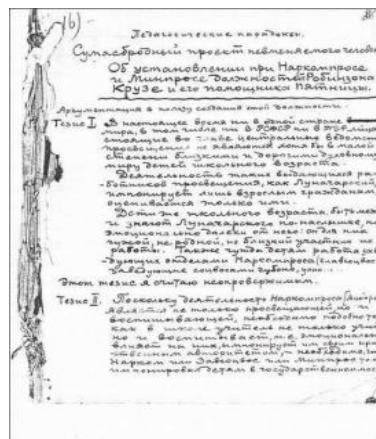 16)
Педагогические парадоксы.
Сумасбродный проект невменяемого
Об установлении при Наркомпросе
и Минпросе должностей Робинзона
Крузе и его помощника Пятницы.
Аргументация в пользу создания этой должности.
Тезис I. В настоящее время ни в одной стране
мира, в том числе ни в РСФСР ни в
стоящие во главе центральные
не являются хотя бы в малой
степени близкими и дорогими духовному
миру детей школьного возраста.
Деятельность таких выдающихся
просвещения, как Луначарский,
импонирует лишь взрослым гражданам,
оценивается только ими.
Дети же школьного возраста, быть может
и знают Луначарского по наслышке, но
эмоционально далеки от него: он для них
чужой, не родной, не близкий участник их
работы. Также чужда детям работа
отделами Наркомпроса
заведующие соцвосами
Этот тезис я считаю неопровержимым.
Тезис II. Поскольку деятельность Наркомпроса
является не только просвещающей, но и
воспитывающей, необходимо подобно
как в школе учитель не только
но и воспитывает, т.е. эмоционально
влияет на них, импонирует им своим
авторитетом, – необходимо,
Нарком или Завсоцвос или Минпрос
импонировал детям в государственном